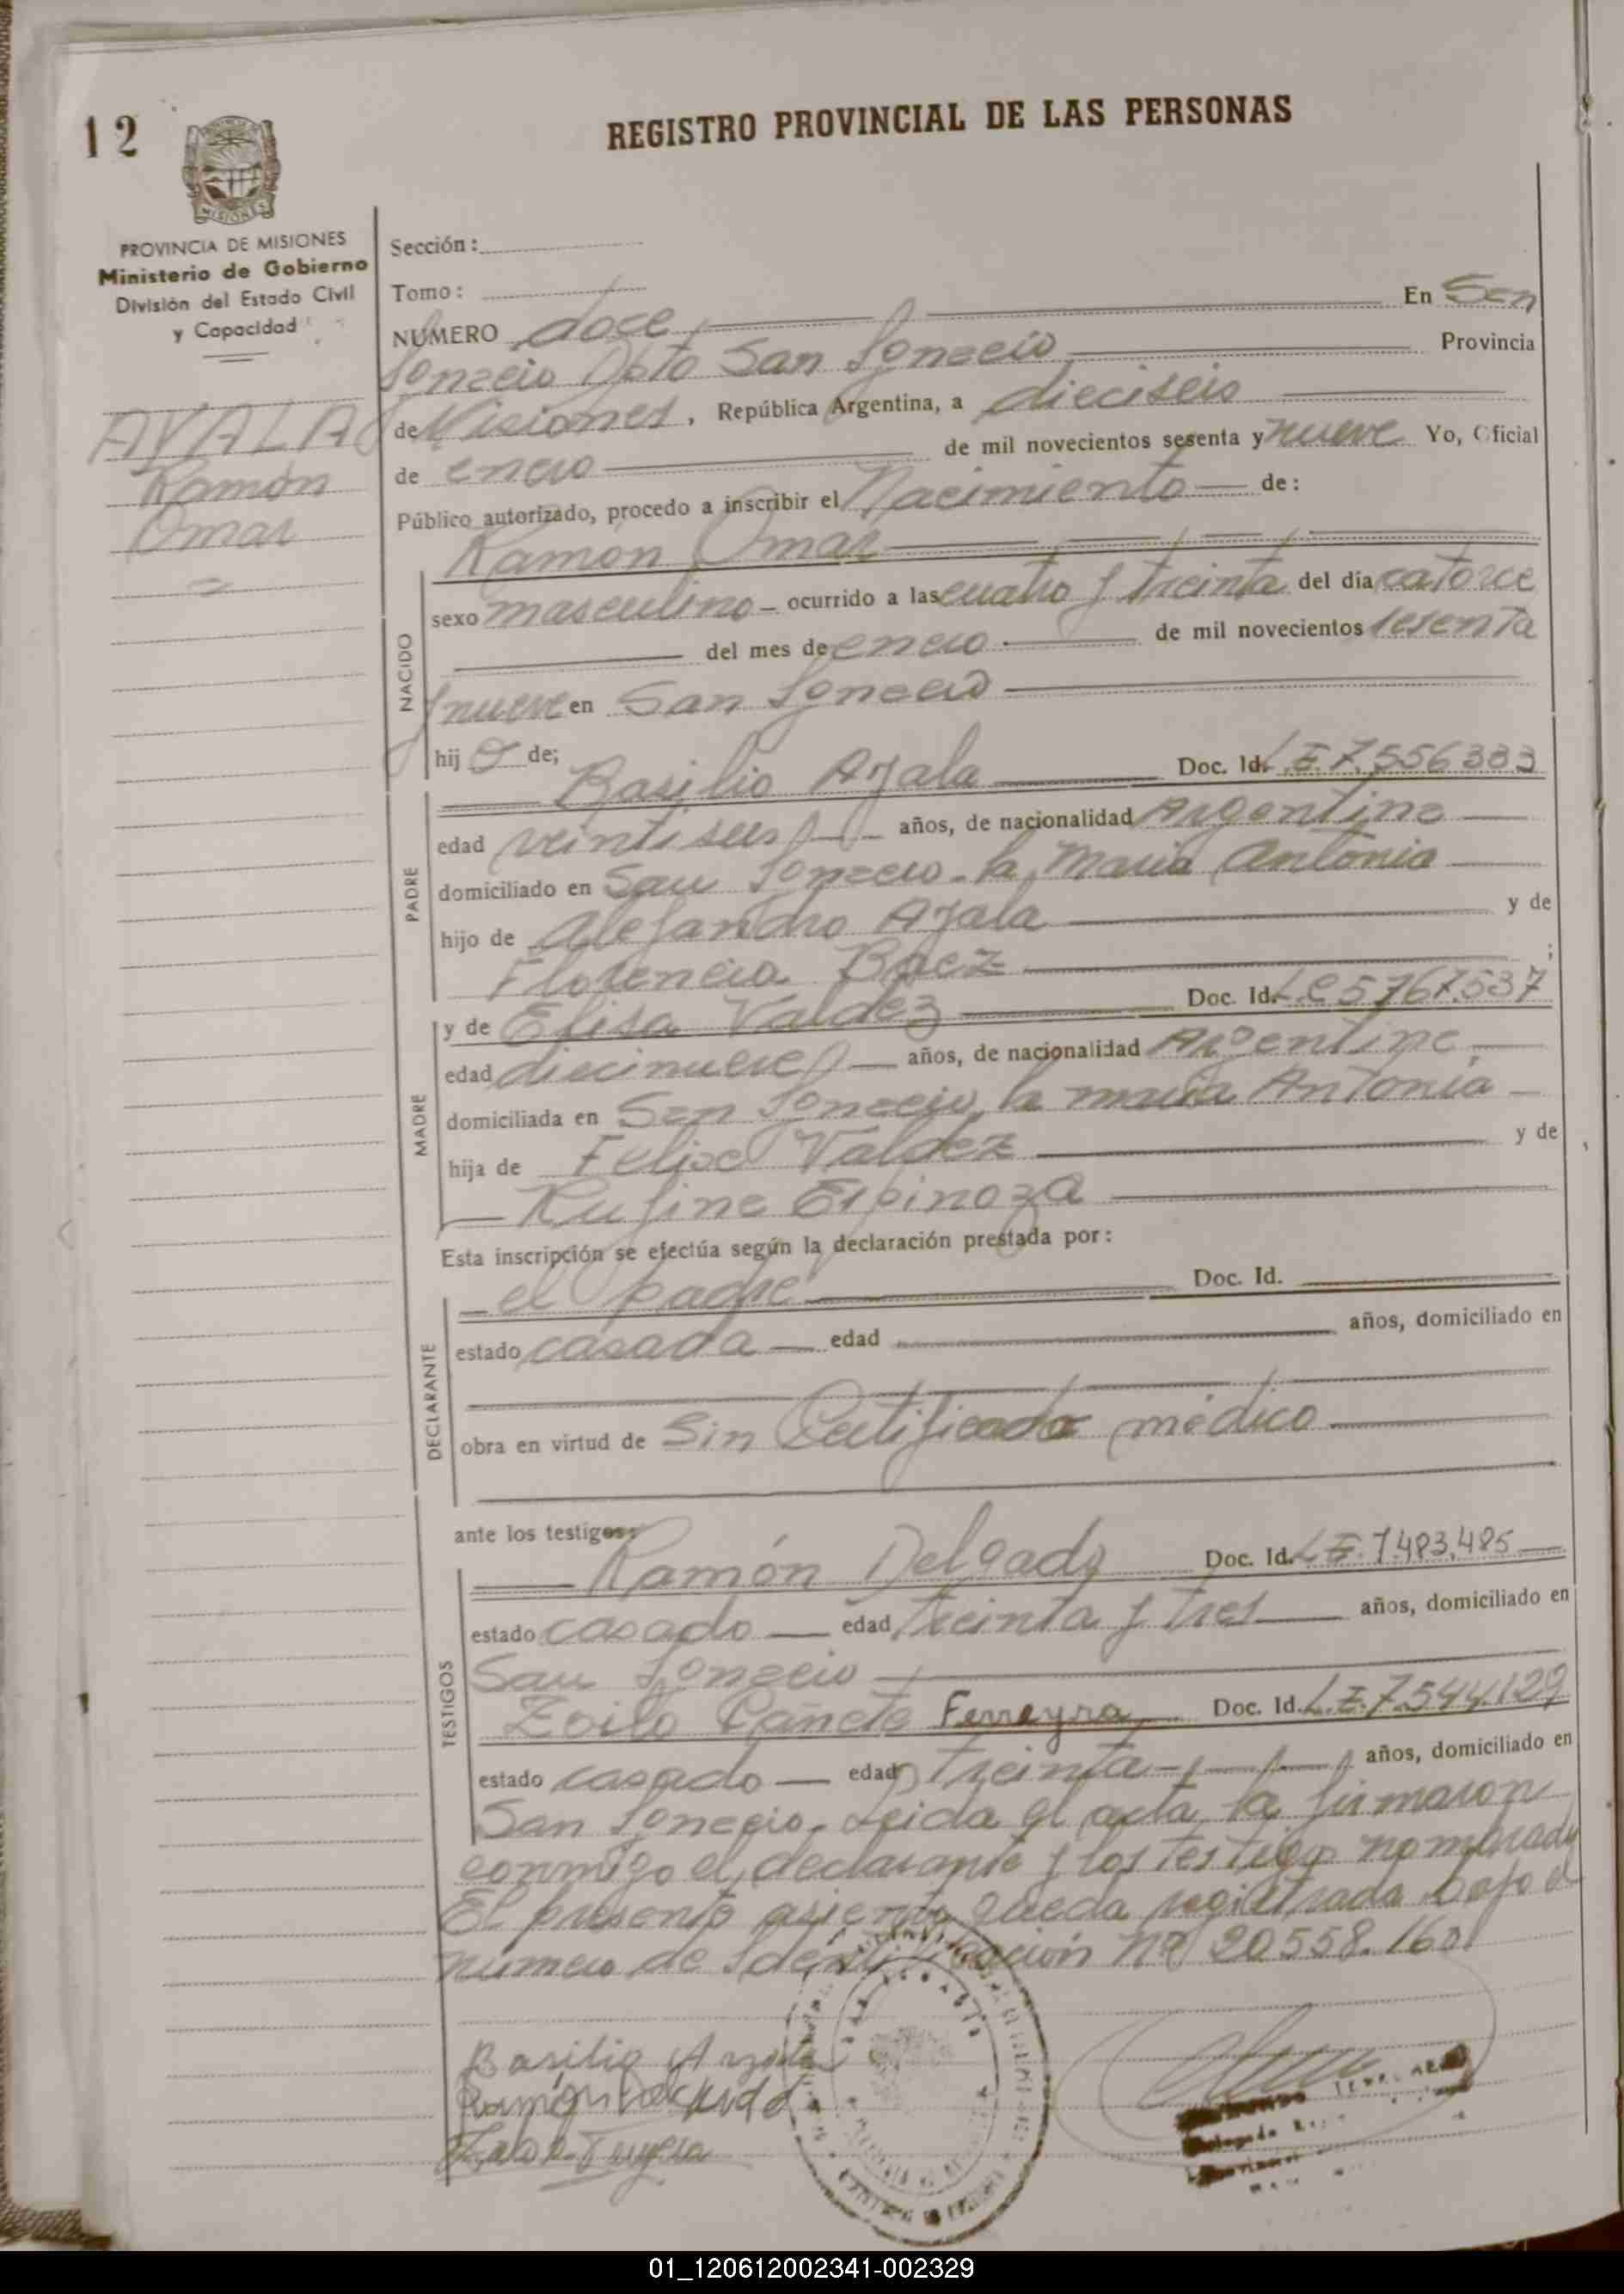 12
REGISTRO PROVINCIAL DE LAS PERSONAS
MISIONES
PROVINCIA DE MISIONES
Ministerio de Gobierno
División del Estado Civil
y Capacidad
AYALA
Ramón
Omar
Sección:
Tomo:
NUMERO doce En San
Ignacio Dpto San Ignacio Provincia
de Misiones, República Argentina, a dieciseis
de enero de mil novecientos sesenta y nueve Yo, Oficial
Público autorizado, procedo a inscribir el Nacimiento de:
Ramón Omar
NACIDO
sexo masculino ocurrido a las cuatro y treinta del día catorce
del mes de enero de mil novecientos sesenta
y nueve en San Ignacio
hijo de;
PADRE
Basilio Ayala Doc. Id. L.E. 7.556383
edad veintiseis años, de nacionalidad Argentina
domiciliado en San Ignacio - la Maria Antonia
hijo de Alejandro Ayala y de
Florencia Baez ;
MADRE
y de Elisa Valdez Doc. Id. L.C 5767.537
edad diecinueve años, de nacionalidad Argentina
domiciliada en San Ignacio, la maria Antonia
hija de Valdez y de
Rufina Espinoza
Esta inscripción se efectúa según la declaración prestada por:
DECLARANTE
el padre Doc. Id.
estado casada edad años, domiciliado en
obra en virtud de Sin Certificado médico
ante los testigos:
TESTIGOS
Ramón Delgado Doc. Id. L.E. 7.483.485
estado casado edad treinta y tres años, domiciliado en
San Ignacio
Zoilo Cañete Ferreyra Doc. Id. L.E. 7.544.129
estado casado edad treinta años, domiciliado en
San Ignacio. Leida el acta, la firmaron
conmigo el declarante y los testigos nombrados
El presente asiento queda registrada bajo el
número de Identificación Nº 20558.160
Basilio Ayala
Ramón Delgado
01_120612002341-002329